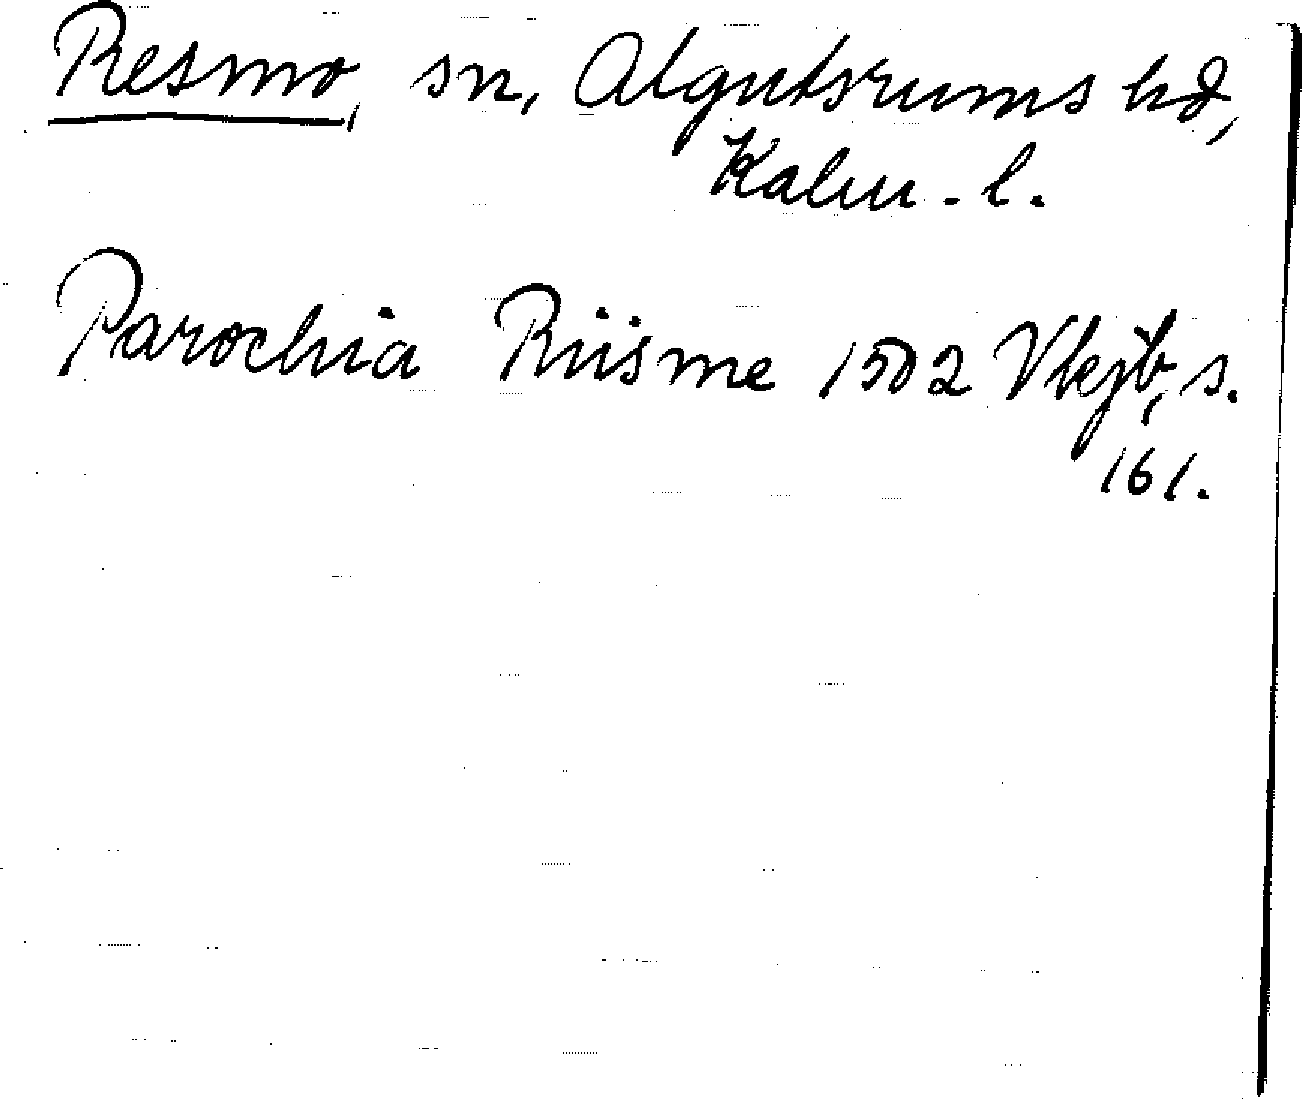 Resmo, sn, Algutsrums hd,
Kalm. l.
Parochia Riisme 1502 Vkjb, s.
161.